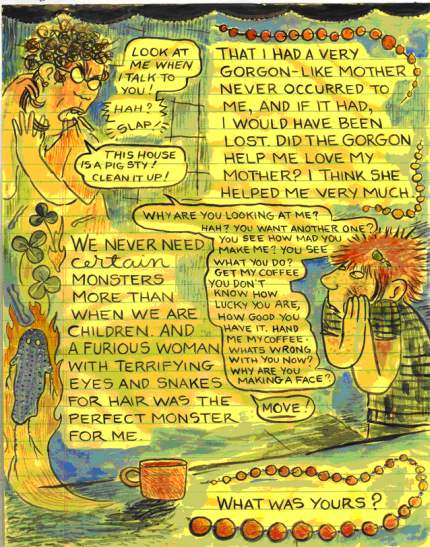 LOOK AT
ME WHEN
I TALK TO
YOU!
HAH?
SLAP!
THIS HOUSE
IS A PIG STY!
CLEAN IT UP!
THAT I HAD A VERY
GORGON-LIKE MOTHER
NEVER OCCURRED TO
ME, AND IF IT HAD,
I WOULD HAVE BEEN
LOST. DID THE GORGON
HELP ME LOVE MY
MOTHER? I THINK SHE
HELPED ME VERY MUCH
WHY ARE YOU LOOKING AT ME?
HAH? YOU WANT ANOTHER ONE?
YOU SEE HOW MAD YOU
MAKE ME? YOU SEE
WHAT YOU DO?
GET MY COFFEE
YOU DON'T
KNOW HOW
LUCKY YOU ARE,
HOW GOOD YOU
HAVE IT. HAND
ME MY COFFEE.
WHATS WRONG
WITH YOU NOW?
WHY ARE YOU
MAKING A FACE?
MOVE!
WE NEVER NEED
certain
MONSTERS
MORE THAN
WHEN WE ARE
CHILDREN. AND
A FURIOUS WOMAN
WITH TERRIFYING
EYES AND SNAKES
FOR HAIR WAS THE
PERFECT MONSTER
FOR ME.
WHAT WAS YOURS?